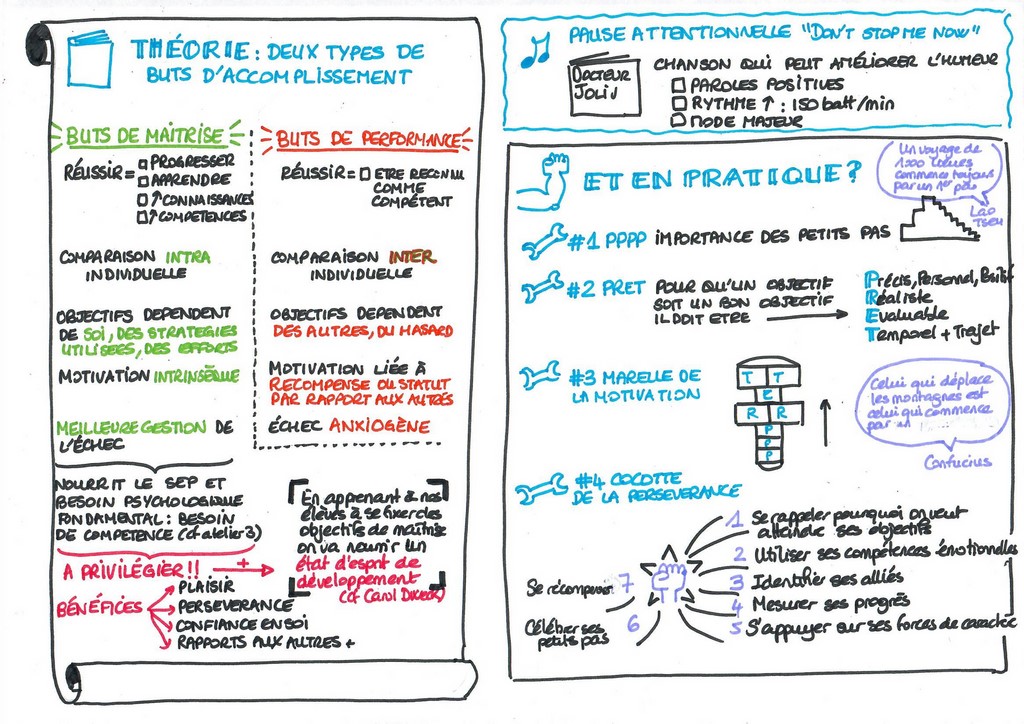 THÉORIE : DEUX TYPES DE
BUTS D'ACCOMPLISSEMENT
BUTS DE MAÎTRISE
RÉUSSIR =
PROGRESSER
APPRENDRE
↑ CONNAISSANCES
↑ COMPETENCES
COMPARAISON INTRA
INDIVIDUELLE
OBJECTIFS DEPENDENT
DE SOI, DES STRATEGIES
UTILISÉES, DES EFFORTS
MOTIVATION INTRINSÈQUE
MEILLEURE GESTION DE
L'ÉCHEC
NOURRIT LE SEP ET
BESOIN PSYCHOLOGIQUE
FONDAMENTAL : BESOIN
DE COMPETENCE (cf atelier 3)
A PRIVILÉGIER !! +
BÉNÉFICES
PLAISIR
PERSEVERANCE
CONFIANCE EN SOI
RAPPORTS AUX AUTRES +
BUTS DE PERFORMANCE
RÉUSSIR = ETRE RECONNU
COMME
COMPÉTENT
COMPARAISON INTER
INDIVIDUELLE
OBJECTIFS DEPENDENT
DES AUTRES, DU HASARD
MOTIVATION LIÉE À
RECOMPENSE OU STATUT
PAR RAPPORT AUX AUTRES
ÉCHEC ANXIOGÈNE
En apprenant à nos
élèves à se fixer des
objectifs de maîtrise
on va nourrir un
état d'esprit de
développement
(cf Carol Dweck)
PAUSE ATTENTIONNELLE "DON'T STOP ME NOW"
DOCTEUR
JOLIJ
CHANSON QUI PEUT AMÉLIORER L'HUMEUR
PAROLES POSITIVES
RYTHME ↑ : 150 batt/min
MODE MAJEUR
ET EN PRATIQUE ?
Un voyage de
1000 lieues
commence toujours
par un 1er pas
LAO
TSEU
#1 PPPP IMPORTANCE DES PETITS PAS
#2 PRET POUR QU'UN OBJECTIF
SOIT UN BON OBJECTIF
IL DOIT ETRE
Précis, Personnel, Positif
Réaliste
Evaluable
Temporel + Trajet
#3 MARELLE DE
LA MOTIVATION
T T
E
R R
P
P
P
Celui qui déplace
les montagnes est
celui qui commence
par un
Confucius
#4 COCOTTE
DE LA PERSEVERANCE
1 Se rappeler pourquoi on veut
atteindre ses objectifs
2 Utiliser ses compétences émotionnelles
3 Identifier ses alliés
4 Mesurer ses progrès
5 S'appuyer sur ses forces de caractère
Célébrer ses 6
petits pas
Se récompenser 7